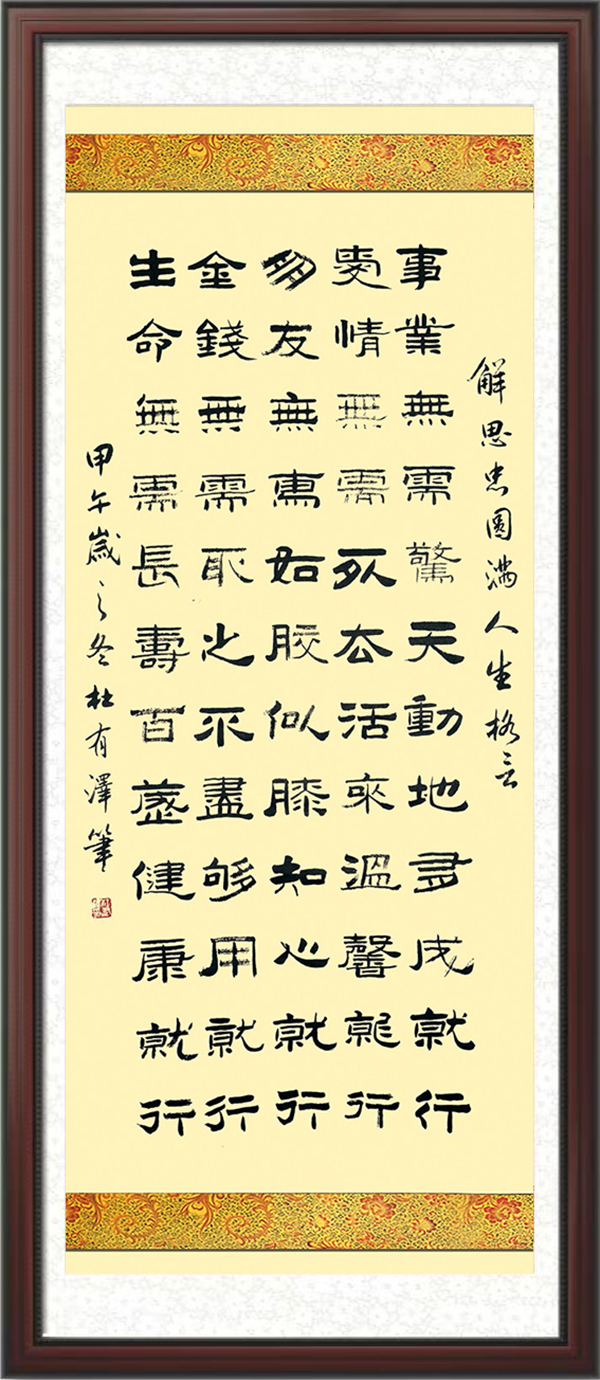 解思忠圓滿人生格言
事業無需驚天動地有成就行
愛情無需死去活來溫馨就行
朋友無需如膠似膝知心就行
金錢無需取之不盡够用就行
生命無需長壽百歲健康就行
甲午歲之冬杜有澤筆